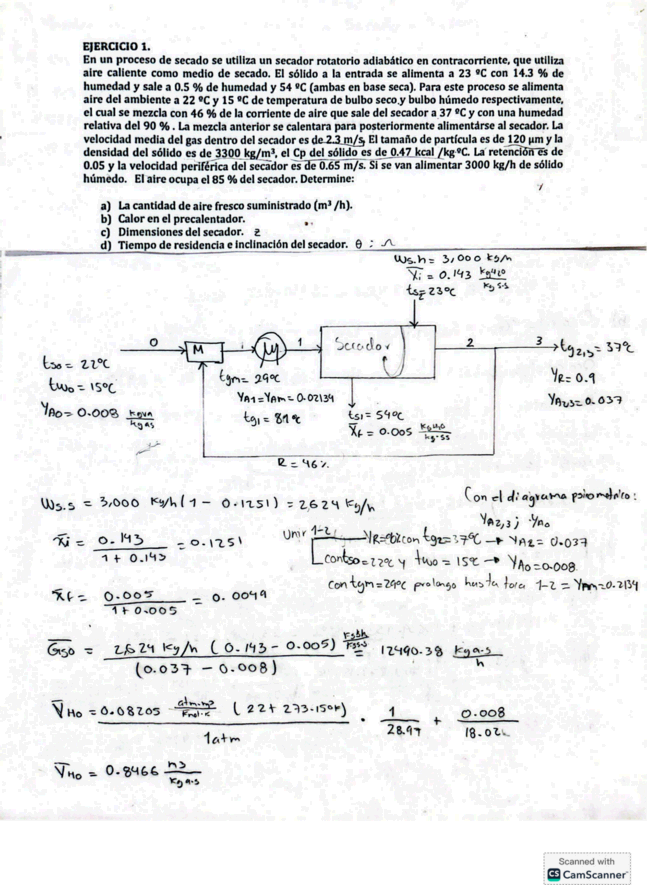 EJERCICIO 1.
En un proceso de secado se utiliza un secador rotatorio adiabático en contracorriente, que utiliza
aire caliente como medio de secado. El sólido a la entrada se alimenta a 23 ºC con 14.3 % de
humedad y sale a 0.5 % de humedad y 54 ºC (ambas en base seca). Para este proceso se alimenta
aire del ambiente a 22 ºC y 15 ºC de temperatura de bulbo seco y bulbo húmedo respectivamente,
el cual se mezcla con 46 % de la corriente de aire que sale del secador a 37 ºC y con una humedad
relativa del 90 % . La mezcla anterior se calentara para posteriormente alimentárse al secador. La
velocidad media del gas dentro del secador es de 2.3 m/s, El tamaño de partícula es de 120 µm y la
densidad del sólido es de 3300 kg/m³, el Cp del sólido es de 0.47 kcal /kg ºC. La retención es de
0.05 y la velocidad periférica del secador es de 0.65 m/s. Si se van alimentar 3000 kg/h de sólido
húmedo. El aire ocupa el 85 % del secador. Determine:
a) La cantidad de aire fresco suministrado (m³ /h).
b) Calor en el precalentador.
c) Dimensiones del secador. z
d) Tiempo de residencia e inclinación del secador. θ :
Ws.h = 3,000 kg/h
X̄i = 0.143 kgH2O/kg s.s
ts2 = 23ºC
0
M
1
Secador
2
3
tg2,3 = 37ºC
YR = 0.9
YA2,3 = 0.037
ts0 = 22ºC
tw0 = 15ºC
YA0 = 0.008
tgm = 29ºC
YA1 = YAm = 0.02134
tg1 = 81ºC
ts1 = 54ºC
X̄f = 0.005 kgH2O/kg.ss
R = 46%
Ws.s = 3,000 Kg/h (1 - 0.1251) = 2624 Kg/h
Con el diagrama psicometrico:
YA2,3 ; YA0
X̄i = 0.143 / 1 + 0.143 = 0.1251
Unir 1-2
con tg2 = 37ºC → YA2 = 0.037
con ts0 = 22ºC y tw0 = 15ºC → YA0 = 0.008
con tgm = 29ºC prolongo hasta tocar 1-2 = YAm = 0.2134
Xf = 0.005 / 1 + 0.005 = 0.0049
G̅s0 = 2,624 Kg/h (0.143 - 0.005) / (0.037 - 0.008) = 12490.38 Kg a.s / h
V̅H0 = 0.08205 atm·m³/Kmol·K (22 + 273.15ºK) / 1 atm · 1 / 28.97 + 0.008 / 18.02
V̅H0 = 0.8466 m3 / Kg a.s
Scanned with
CS CamScanner